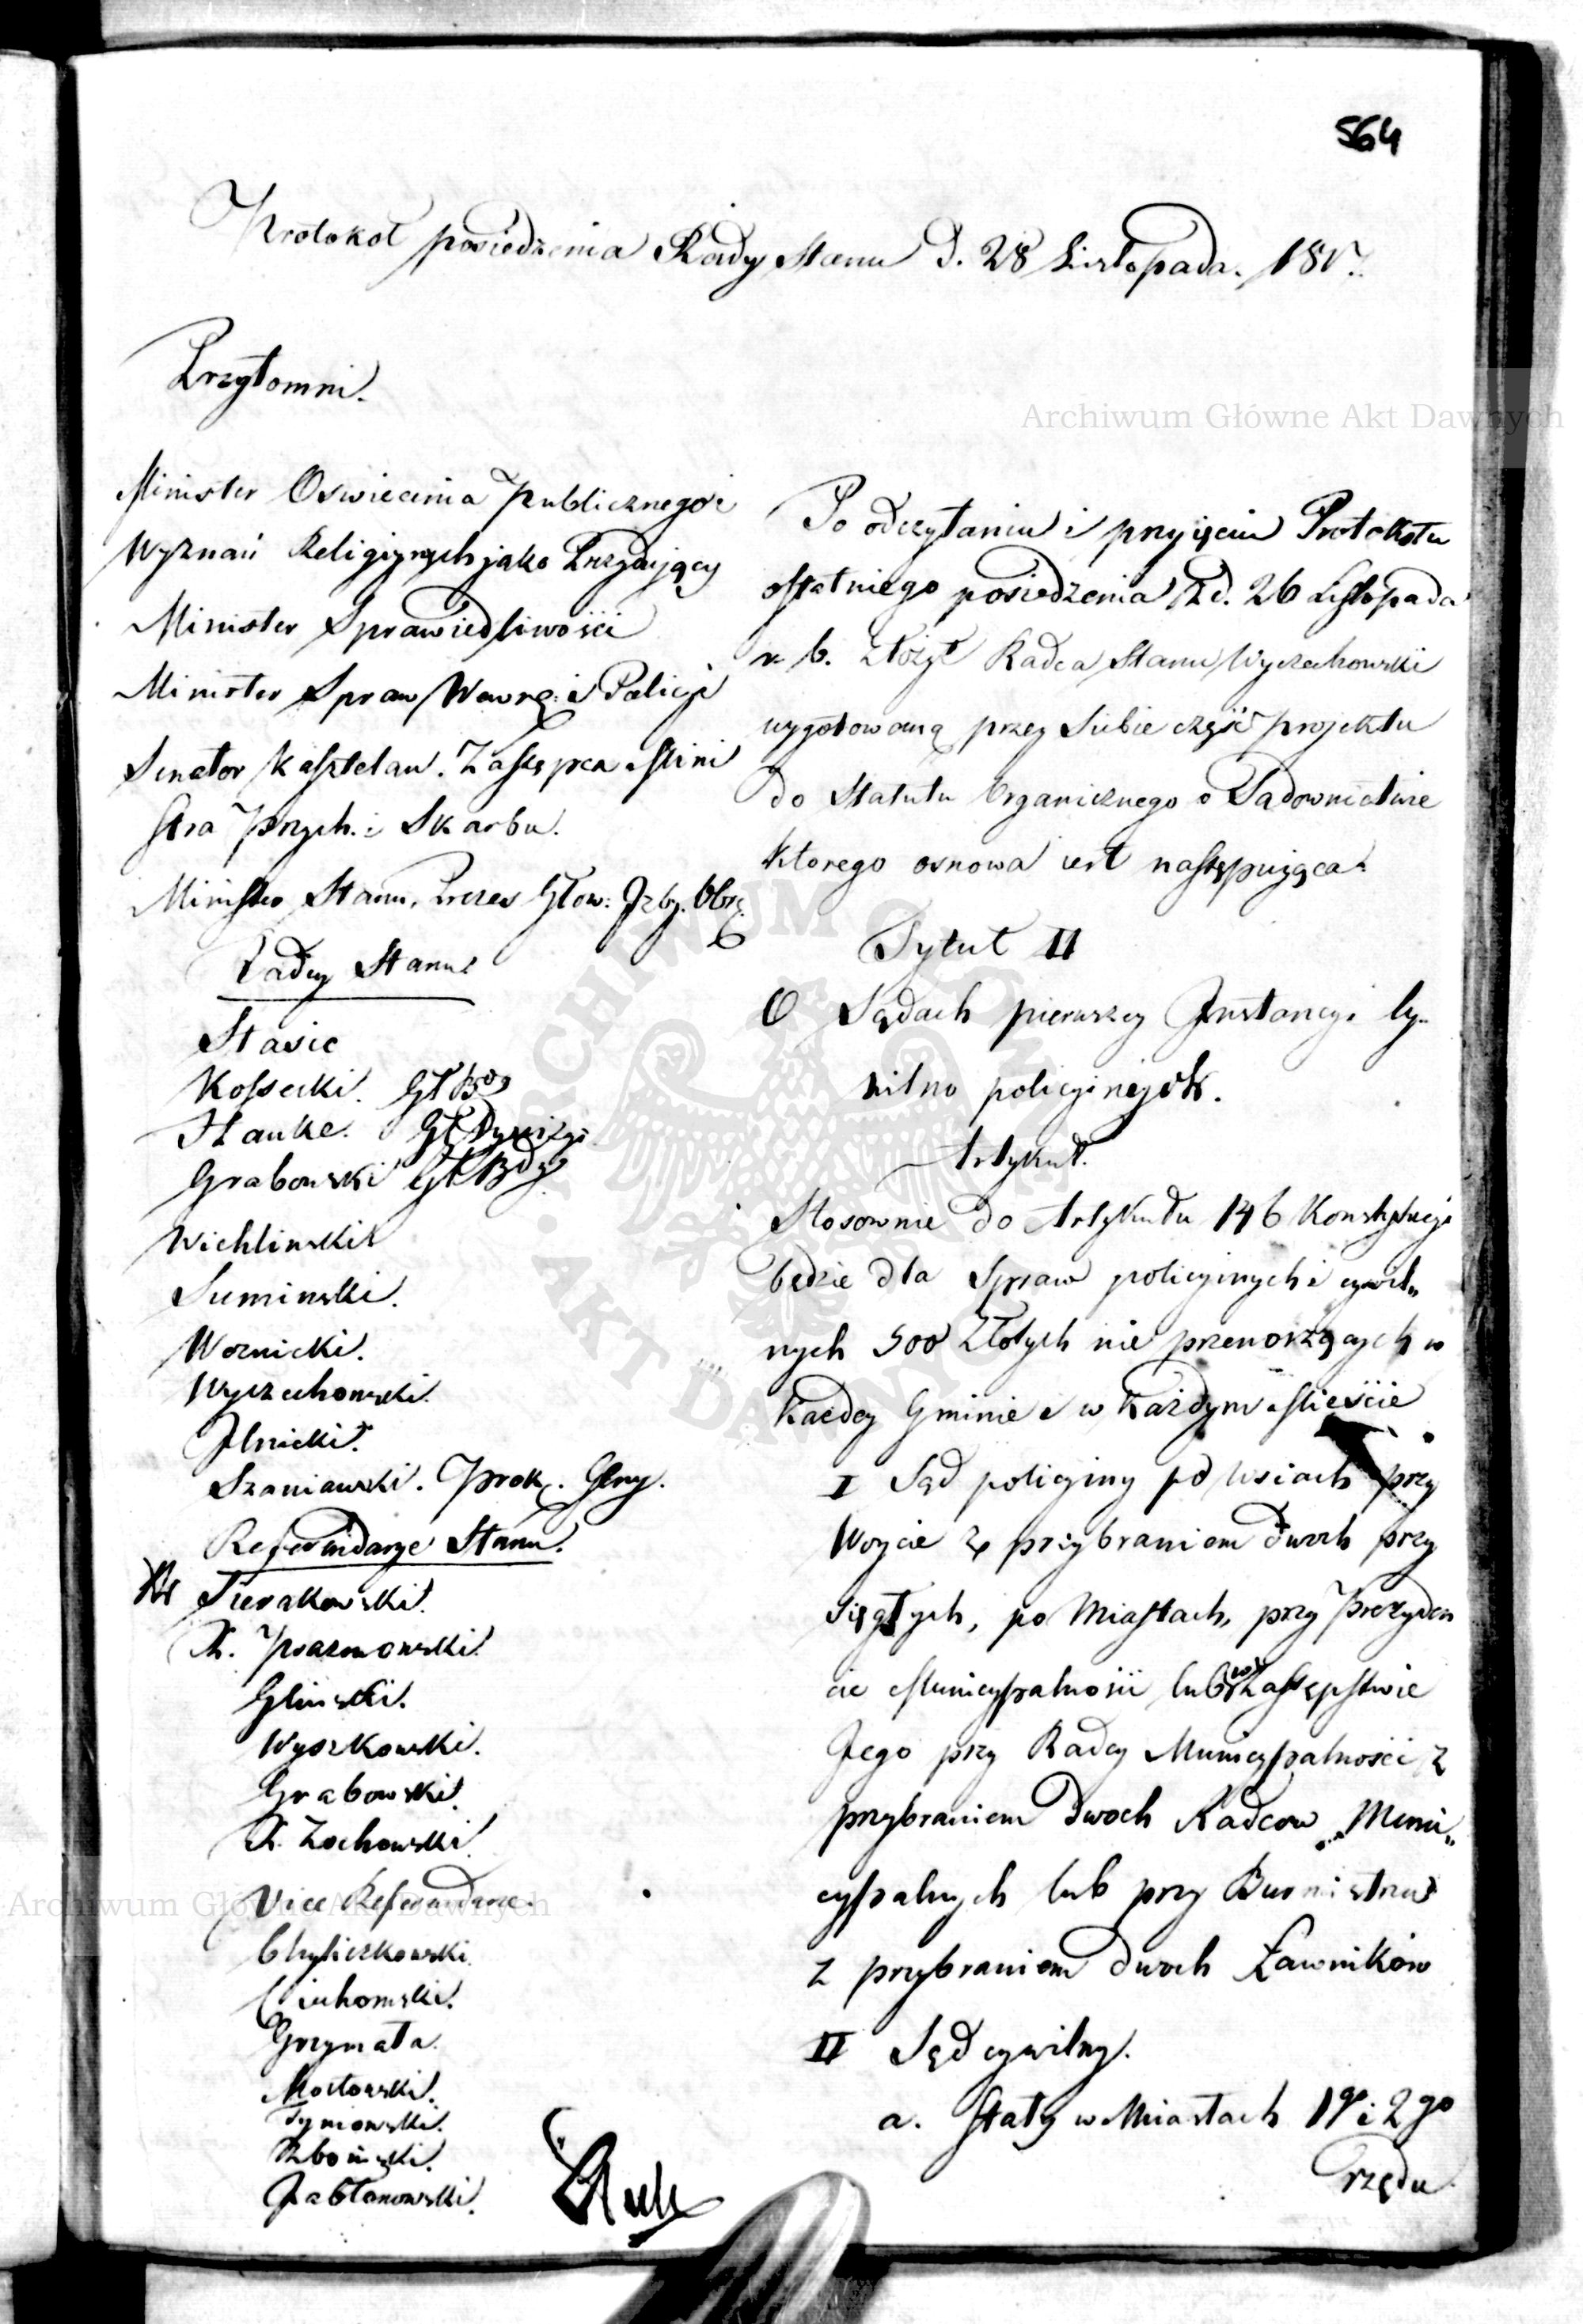 564
Protokoł posiedzenia Rady Stanu d. 28 Listopada. 1817.
Przytomni.
Minister Oswiecenia Publicznego i
Wyznań Religijnych jako Prezydujący
Minister Sprawiedliwości
Minister Spraw Wewnę: i Policji
Senator Kasztelan. Zastępca Mini
stra Przych: i Skarbu.
Minister Stanu, Prezes Głow: Izby. Obra.
Radcy Stanu
Stasic
Kossecki.
Hauke.
Grabowski
Wichlinski
Suminski.
Woznicki.
Wyczechowski.
Ilnicki.
Szaniawski. Prok. Glny.
Referendarze Stanu.
Sierakowski.
X. Prazmowski.
Glinski.
Wyszkowski.
Grabowski.
X. Zochowski.
Vice Referendarze.
Chyliczkowski.
Cichomski.
Grzymała.
Mostowski.
Tymowski.
Zboinski.
Jabłonowski.
Po odczytaniu i przyięciu Protokołu
ostatniego posiedzenia z d. 26 Listopada
r. b. złożył Radca Stanu Wyczechowski
wygotowaną przez siebie część projektu
do Statutu Organicznego o Sądownictwie
ktorego osnowa iest następuiąca.
Tytuł II
O Sądach pierwszey Instancyi Cy-
wilno policyinych.
Artykuł.
Stosownie do Artykułu 146 Konstytucyi
będzie dla Spraw policyinych i cywil„
nych 500 Złotych nie przenoszących w
każdey Gminie i w każdym Mieście
I Sąd policyiny po wsiach przy
Woycie z przybraniem dwoch przy
sięgłych, po Miastach, przy Prezyden
cie Municypalności lub w Zastępstwie
Jego przy Radcy Municypalności z
przybraniem dwoch Radcow Muni„
cypalnych lub przy Burmistrzu
z przybraniem dwoch Ławników
II Sąd cywilny.
a. Stały w Miastach 1go i 2go
rzędu
Archiwum Główne Akt Dawnych
Archiwum Główne Akt Dawnych
ARCHIWUM GŁÓWNE
AKT DAWNYCH